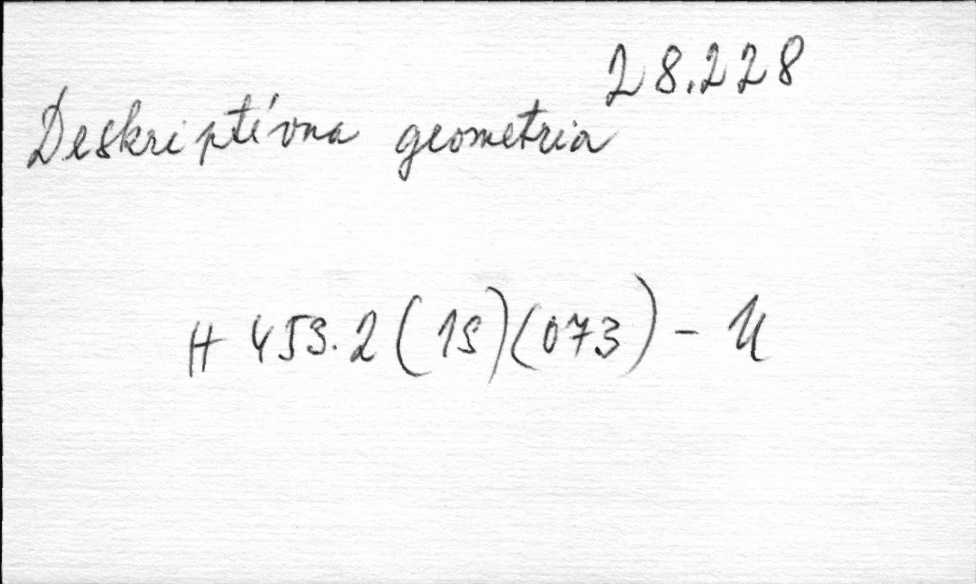 28.228
Deskriptívna geometria
H 453.2 (1S)(073) - U